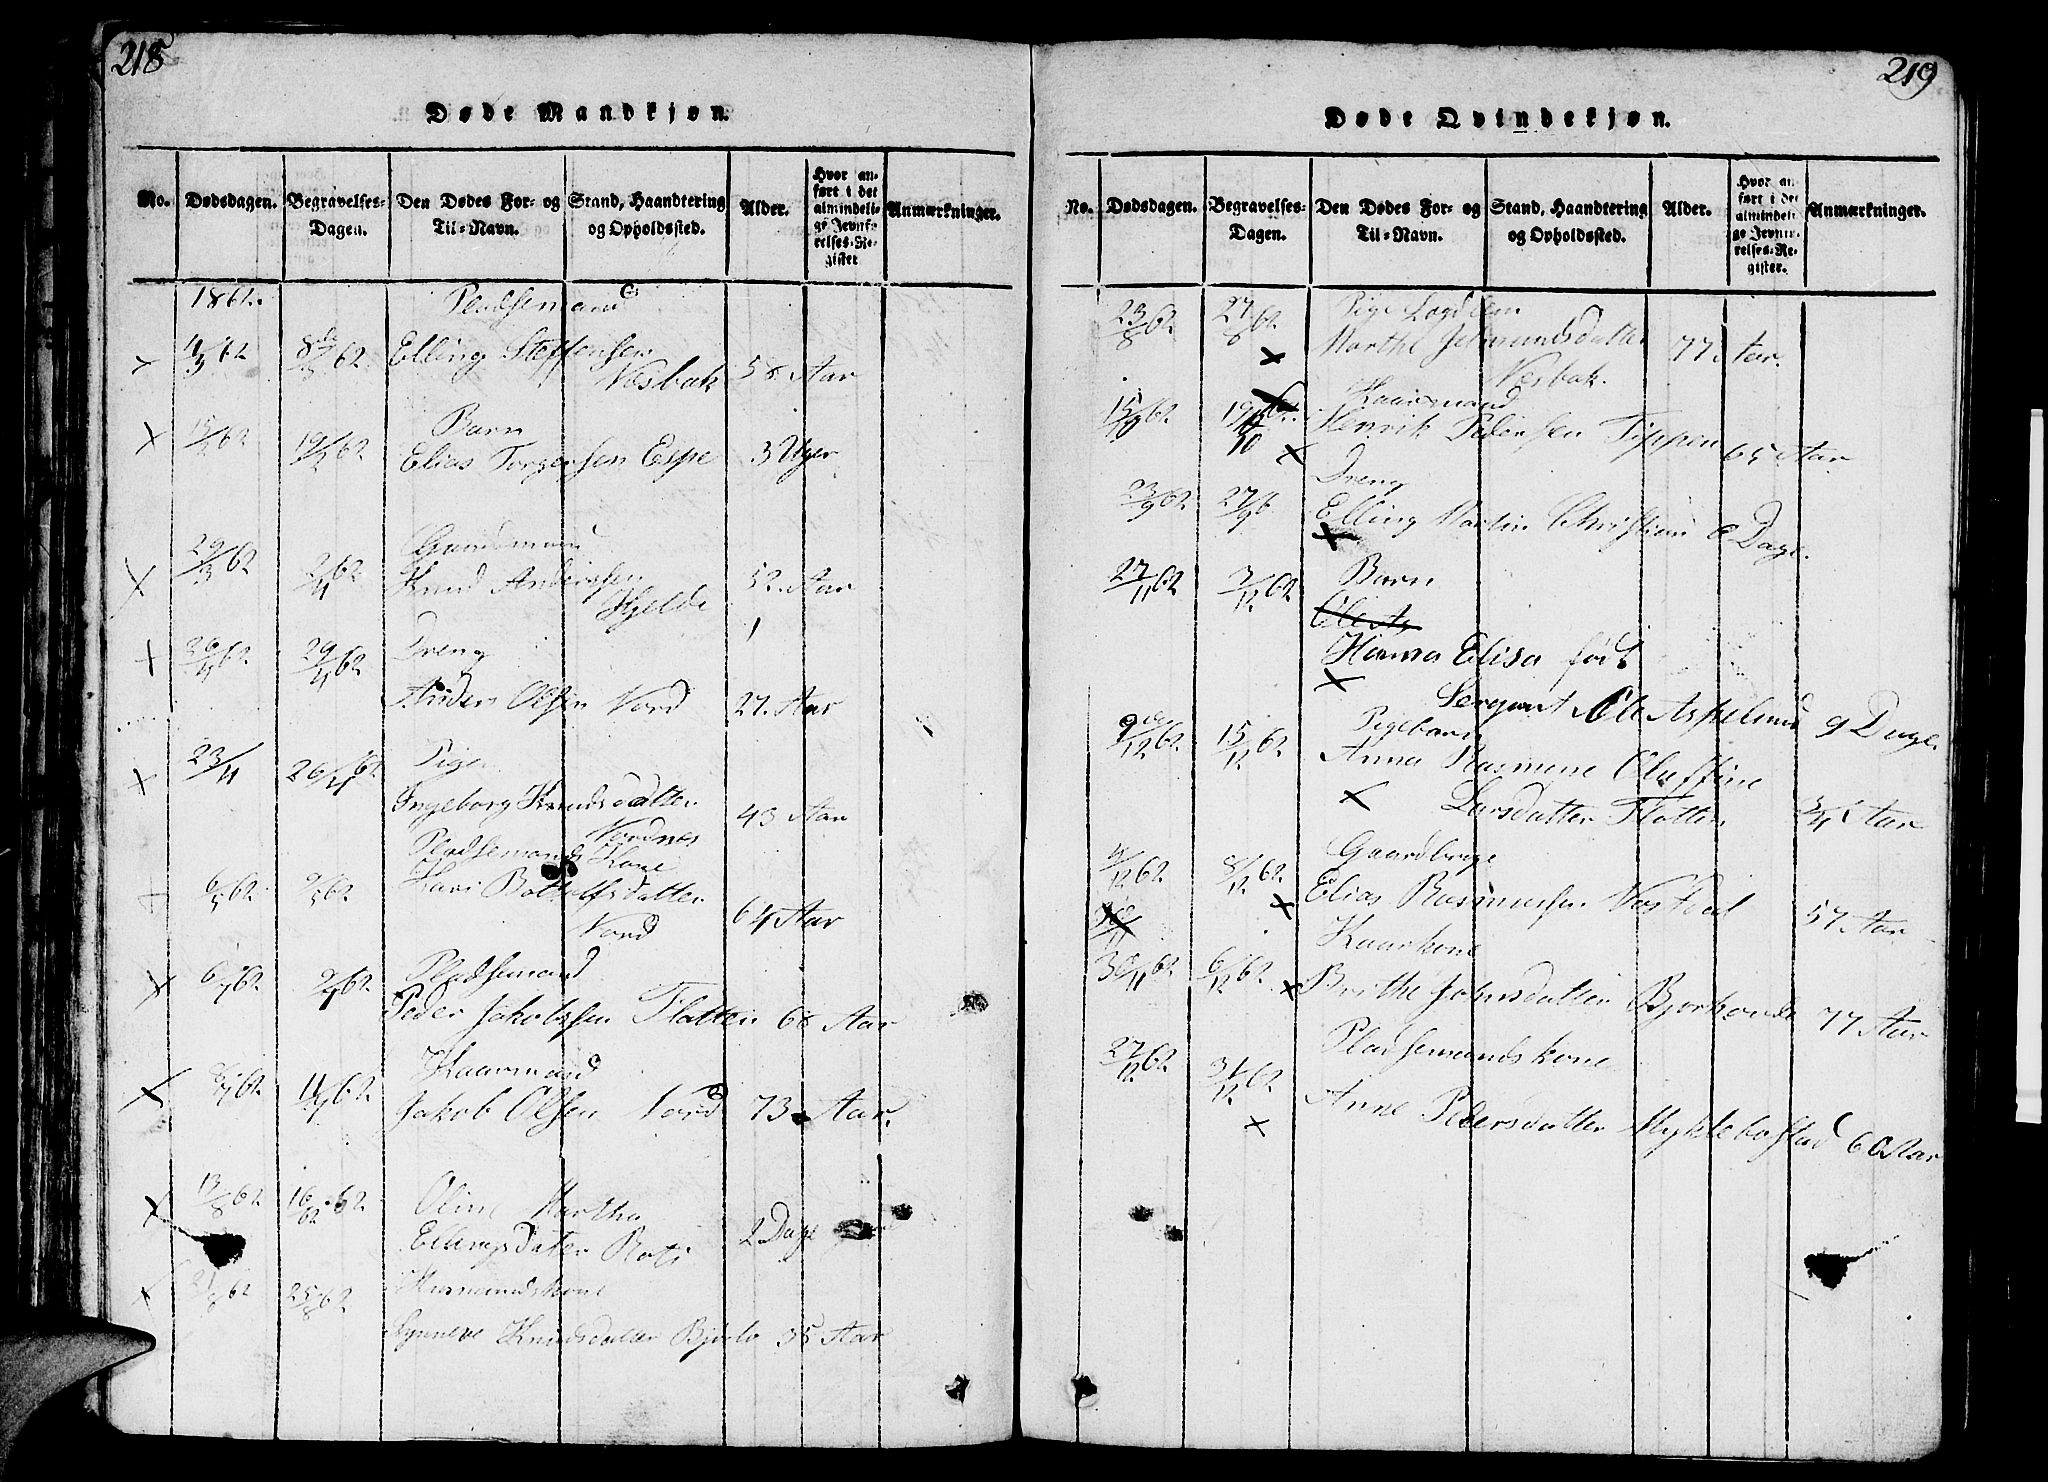 218
Døde Mandkjøn.
No. Dødsdagen. Begravelses-Dagen. Den Dødes For- og Til-Navn. Stand, Haandtering og Opholdssted. Alder. Hvor anført i det almindelige Jevnførelses-Register Anmærkninger.
1862. Pladsemand
4/3 62 8de/3 62 Elling Steffensen
Næsbak 58 Aar
Barn
15/2 62 19/2 62 Elias Torgersen Espe 3 Uger
Gaardmand
29/3 62 2/4 62 Knud Anderssen 52. Aar
Hjelde
26/4 62 29/4 62 Dreng
Anders Olsen Nord 27. Aar
23/4 26/4 62 Pige
Ingeborg Knudsdatter
Nordnes 43 Aar
Pladsemands Kone
6/5 62 9/5 62 Kari Bottolfsdatter
Nord 64 Aar
Pladsemand
6/7 62 9/7 62
Peder Jakobssen Flatten 68 Aar
Kaarmand
8/7 62 11/7 62
Jakob Olsen Nord 73. Aar.
13/8 62 16/62 62 Oline Martha
Ellingsdatter Roti 2 Dage
21/8 62 25/8 62 Huusmandskone
Synneve Knudsdatter Bjørlo 35 Aar
219
Døde Qvindekjøn.
No. Dødsdagen. Begravelses-Dagen. Den Dødes For- og Til-Navn. Stand, Haandtering og Opholdssted. Alder. Hvor anført i det almindelige Jevnførelses-Register. Anmærkninger.
23/8 62 27/8 62 Pige Lægdlem
Marthe Jetmundsdatter 77. Aar.
Næsbak.
Kaarmand
15/10 62 19/10 Henrik Pedersen Tippen 65 Aar
Dreng
23/9 62 27/9 6 Elling Martin Christian 8 Dage.
27/11 62 3/12 62 Barn
Ole As
Hanna Elisa født
Sergant Ole Aspelund 9 Dage.
9de/12 62 15/12 62 Pigebarn
Anna Rasmene Oluffine
Larsdatter Flotten 3/4 Aar
Gaardbruge
4/12 62 8/12 62 Elias Rasmussen Nastdal 57 Aar
30/11
Kaarkone
30/11 62 6/12 62 Brithe Johnsdatter Bjørhovde 77 Aar
Pladsemandskone
27/12 62 31/12 62
Anne Pedersdatter Myklebostad 60 Aar